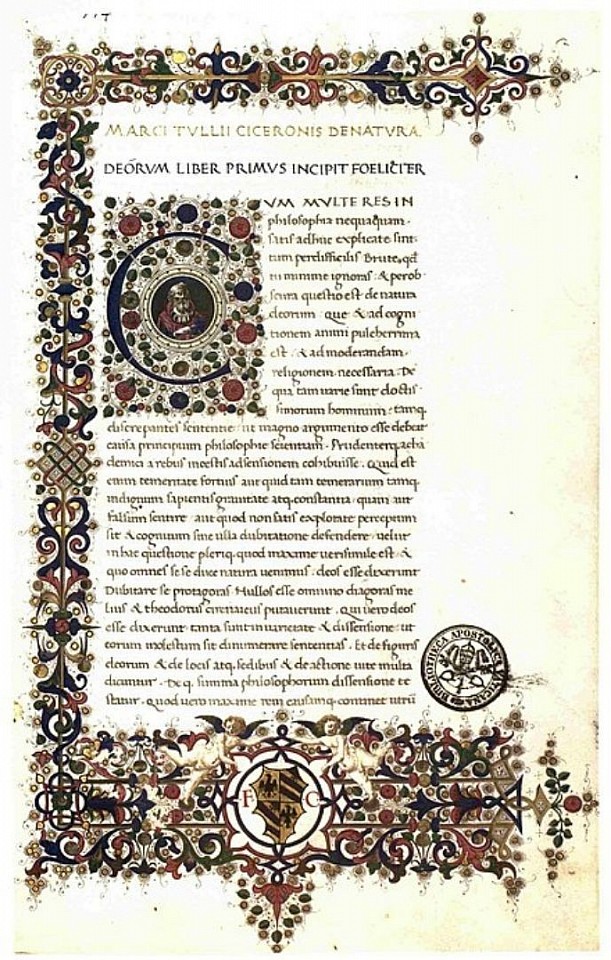 MARCI TVLLII CICERONIS DE NATVRA
DEORVM LIBER PRIMVS INCIPIT FOELICITER
CVM MVLTE RES IN
philosophia nequaquam
satis adhuc explicate sint
tum perdifficilis Brute, qd
tu minime ignoras & perob
scura questio est de natura
deorum que & ad cogni
tionem animi pulcherrima
est & ad moderandam
religionem necessaria. De
qua tam varie sunt doctis
simorum hominum tamq
discrepantes sententie ut magno argumento esse debeat
causa principium philosophie scientiam. Prudenterq, acha
demici a rebus incertis adsensionem cohibuisse. Quid est
enim temeritate fortius aut quid tam temerarium tamq,
indignum sapientis gravitate atq, constantia quam aut
falsum sentire aut quod non satis explorate perceptum
sit & cognitum sine ulla dubitatione defendere velut
in hac questione pleriq, quod maxime verisimile est &
quo omnes sese duce natura venimus deos esse dixerunt
Dubitare se protagoras Nullos esse omnino diagoras me
lius & theodorus cirenaicus putaverunt. Qui vero deos
esse dixerunt tanta sunt in varietate & dissensione ut
eorum molestum sit dinumerare sententias. Et de figuris
deorum & de locis atq, sedibus & de actione vite multa
dicuntur. De q, summa philosophorum dissensione te
statur. Quod vero maxime rem causamq, continet utru
F C
BIBLIOTHECA APOSTOLICA VATICANA